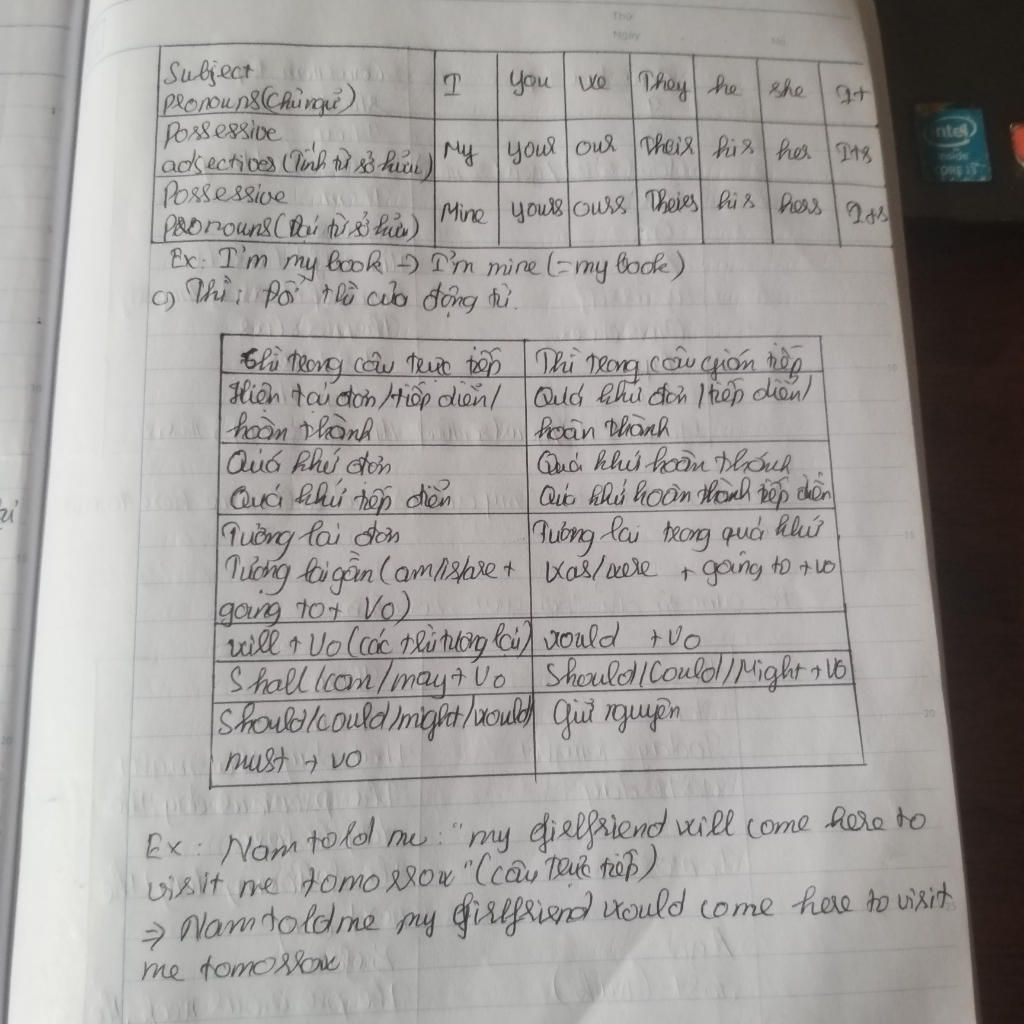 Thứ
Ngày
No.
Subject pronouns(chủ ngữ) I you we They he she It
Possessive adjectives(Tính từ sở hữu) My your our Their his her Its
Possessive pronouns(Đại từ sở hữu) Mine yours ours Theirs his hers Its
Ex: I'm my book → I'm mine(=my book)
c) Thì: Đổi thì của động từ.
thì trong câu trực tiếp Thì trong câu gián tiếp
Hiện tại đơn/tiếp diễn/ Quá khứ đơn/tiếp diễn/
hoàn thành hoàn thành
Quá khứ đơn Quá khứ hoàn thành
Quá khứ tiếp diễn Quá khứ hoàn thành tiếp diễn
Tương lai đơn Tương lai trong quá khứ
Tương lai gần(am/is/are + was/were + going to + Vo
going to + Vo)
will + Vo(các thì tương lai) would + Vo
Shall/can/may + Vo Should/Could/Might + Vo
Should/could/might/would/ Giữ nguyên
must + Vo
Ex: Nam told me: "my girlfriend will come here to
visit me tomorrow"(câu trực tiếp)
⇒ Nam told me my girlfriend would come here to visit
me tomorrow
intel
inside
CORE i3